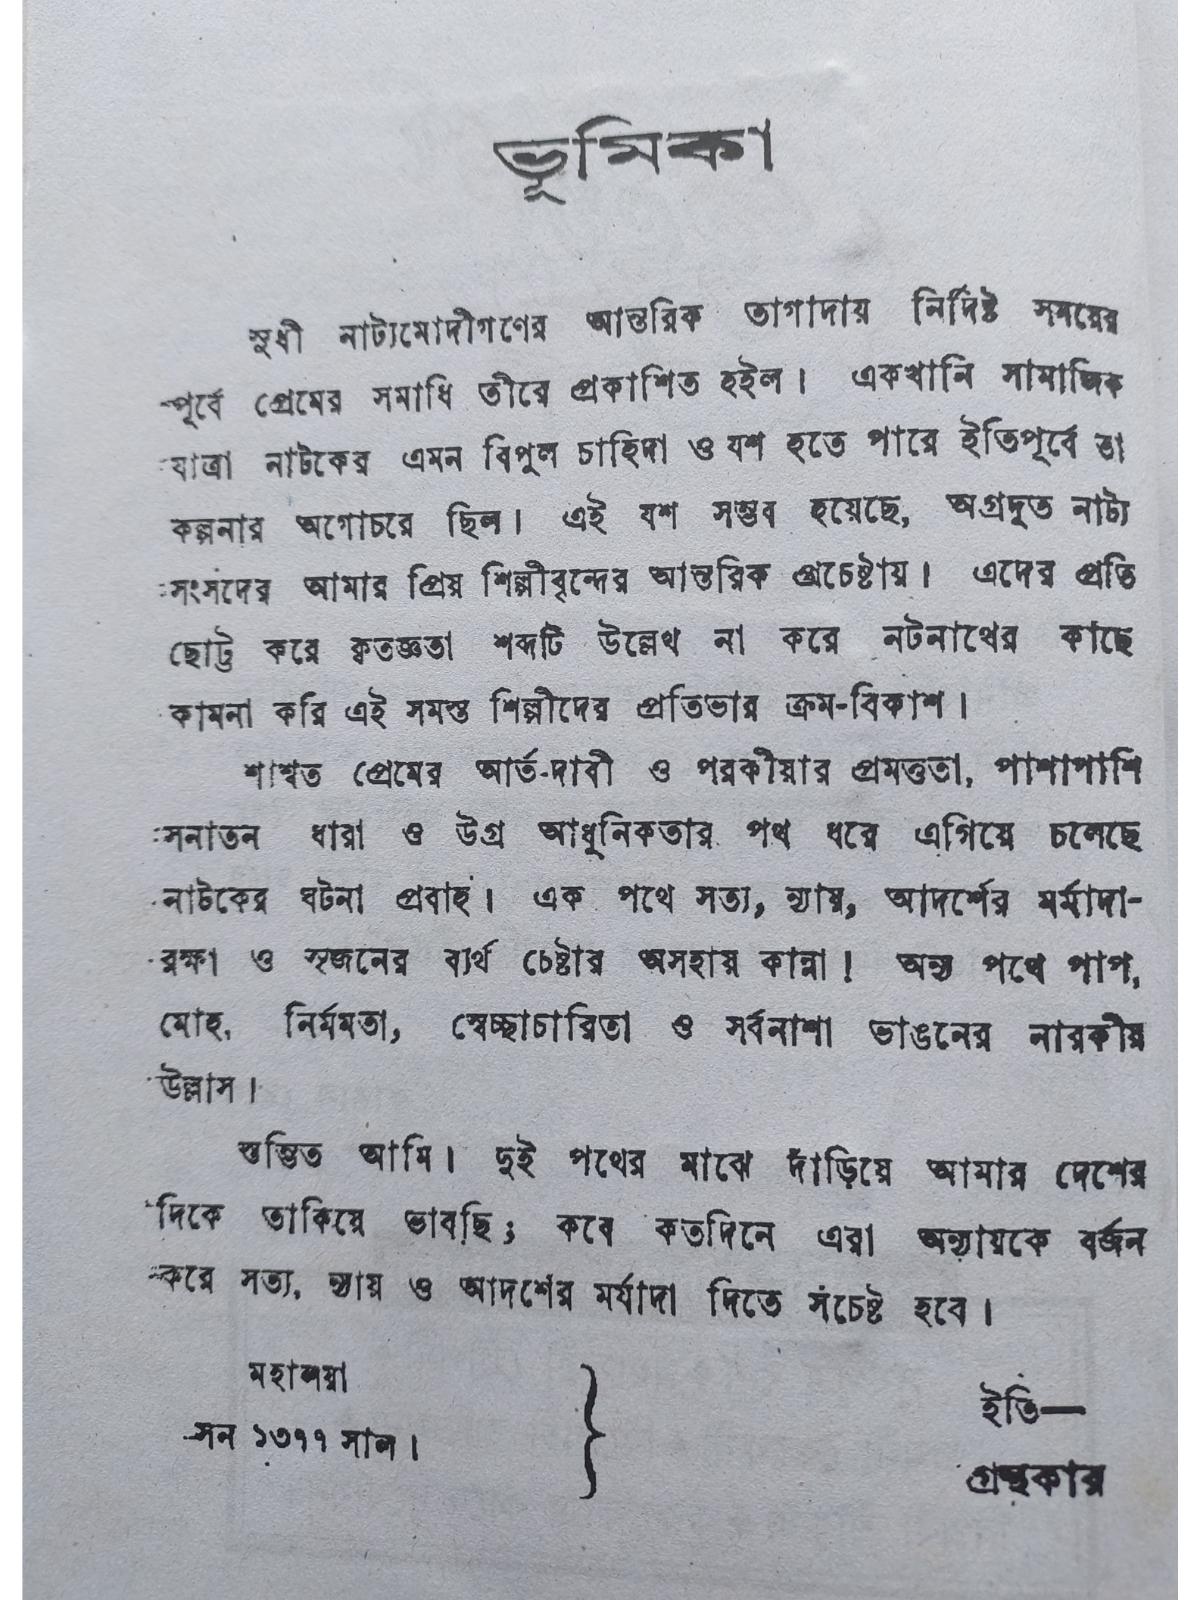 ভূমিকা
সুধী নাট্যমোদীগণের আন্তরিক তাগাদায় নির্দিষ্ট সময়ের
পূর্বে প্রেমের সমাধি তীরে প্রকাশিত হইল। একখানি সামাজিক
যাত্রা নাটকের এমন বিপুল চাহিদা ও যশ হতে পারে ইতিপূর্বে তা
কল্পনার অগোচরে ছিল। এই যশ সম্ভব হয়েছে, অগ্রদূত নাট্য
সংসদের আমার প্রিয় শিল্পীবৃন্দের আন্তরিক প্রচেষ্টায়। এদের প্রতি
ছোট্ট করে কৃতজ্ঞতা শব্দটি উল্লেখ না করে নটনাথের কাছে
কামনা করি এই সমস্ত শিল্পীদের প্রতিভার ক্রম-বিকাশ।
শাশ্বত প্রেমের আর্ত-দাবী ও পরকীয়ার প্রমত্ততা, পাশাপাশি
সনাতন ধারা ও উগ্র আধুনিকতার পথ ধরে এগিয়ে চলেছে
নাটকের ঘটনা প্রবাহ। এক পথে সত্য, ন্যায়, আদর্শের মর্মাদা-
রক্ষা ও সৃজনের ব্যর্থ চেষ্টার অসহায় কান্না! অন্য পথে পাপ,
মোহ, নির্মমতা, স্বেচ্ছাচারিতা ও সর্বনাশা ভাঙনের নারকীয়
উল্লাস।
স্তম্ভিত আমি। দুই পথের মাঝে দাঁড়িয়ে আমার দেশের
দিকে তাকিয়ে ভাবছি; কবে কতদিনে এরা অন্যায়কে বর্জন
করে সত্য, ন্যায় ও আদর্শের মর্যাদা দিতে সচেষ্ট হবে।
মহালয়া
সন ১৩৭৭ সাল।
ইতি—
গ্রন্থকার